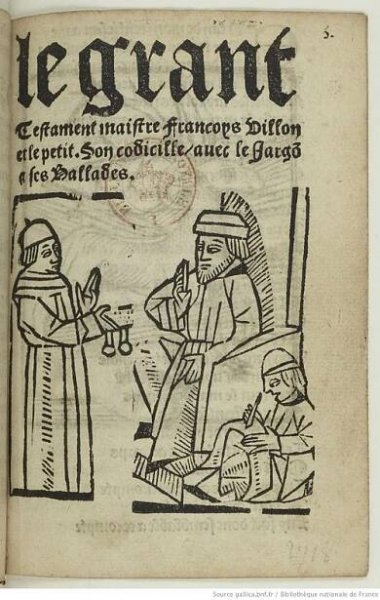 5.
le grant
Testament maistre Francoys Villon
et le petit. Son codicille/avec le Jargõ
a ses Ballades.
Source gallica.bnf.fr / Bibliothèque nationale de France